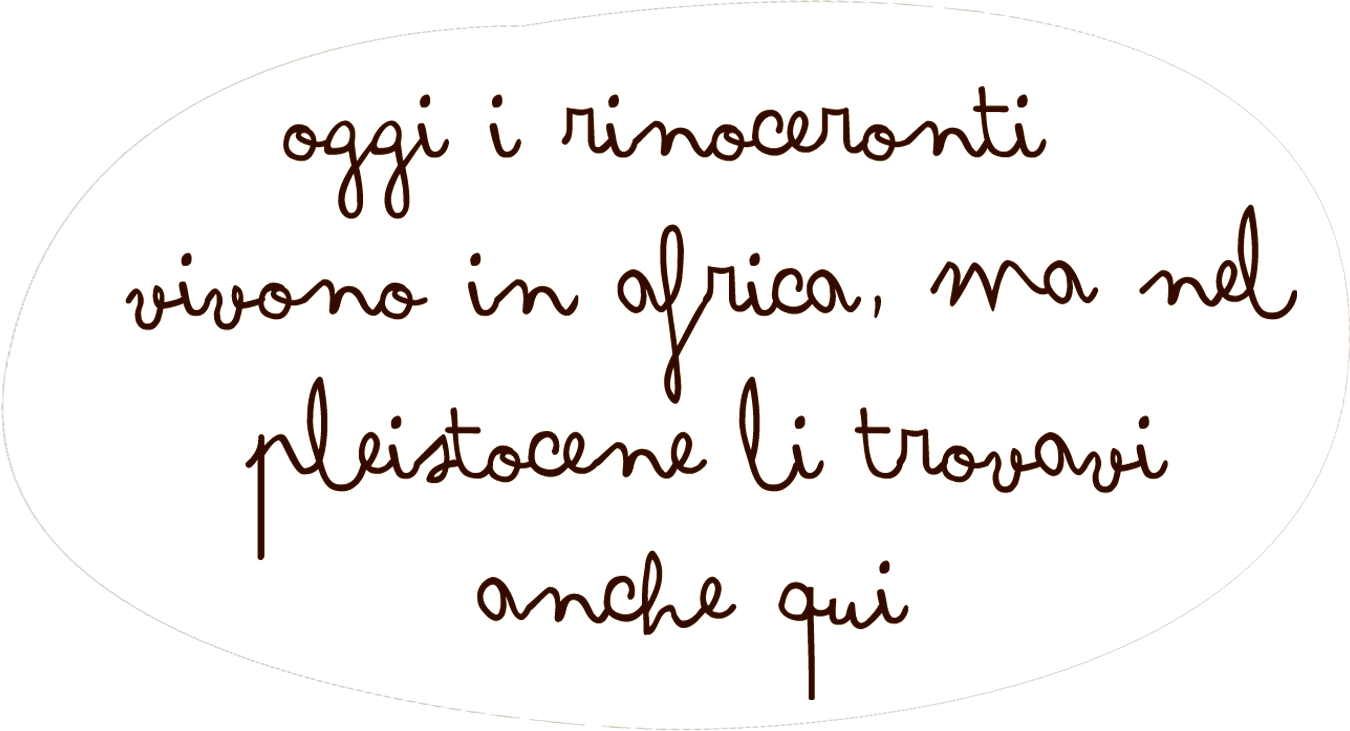 oggi i rinoceronti
vivono in africa, ma nel
pleistocene li trovavi
anche qui